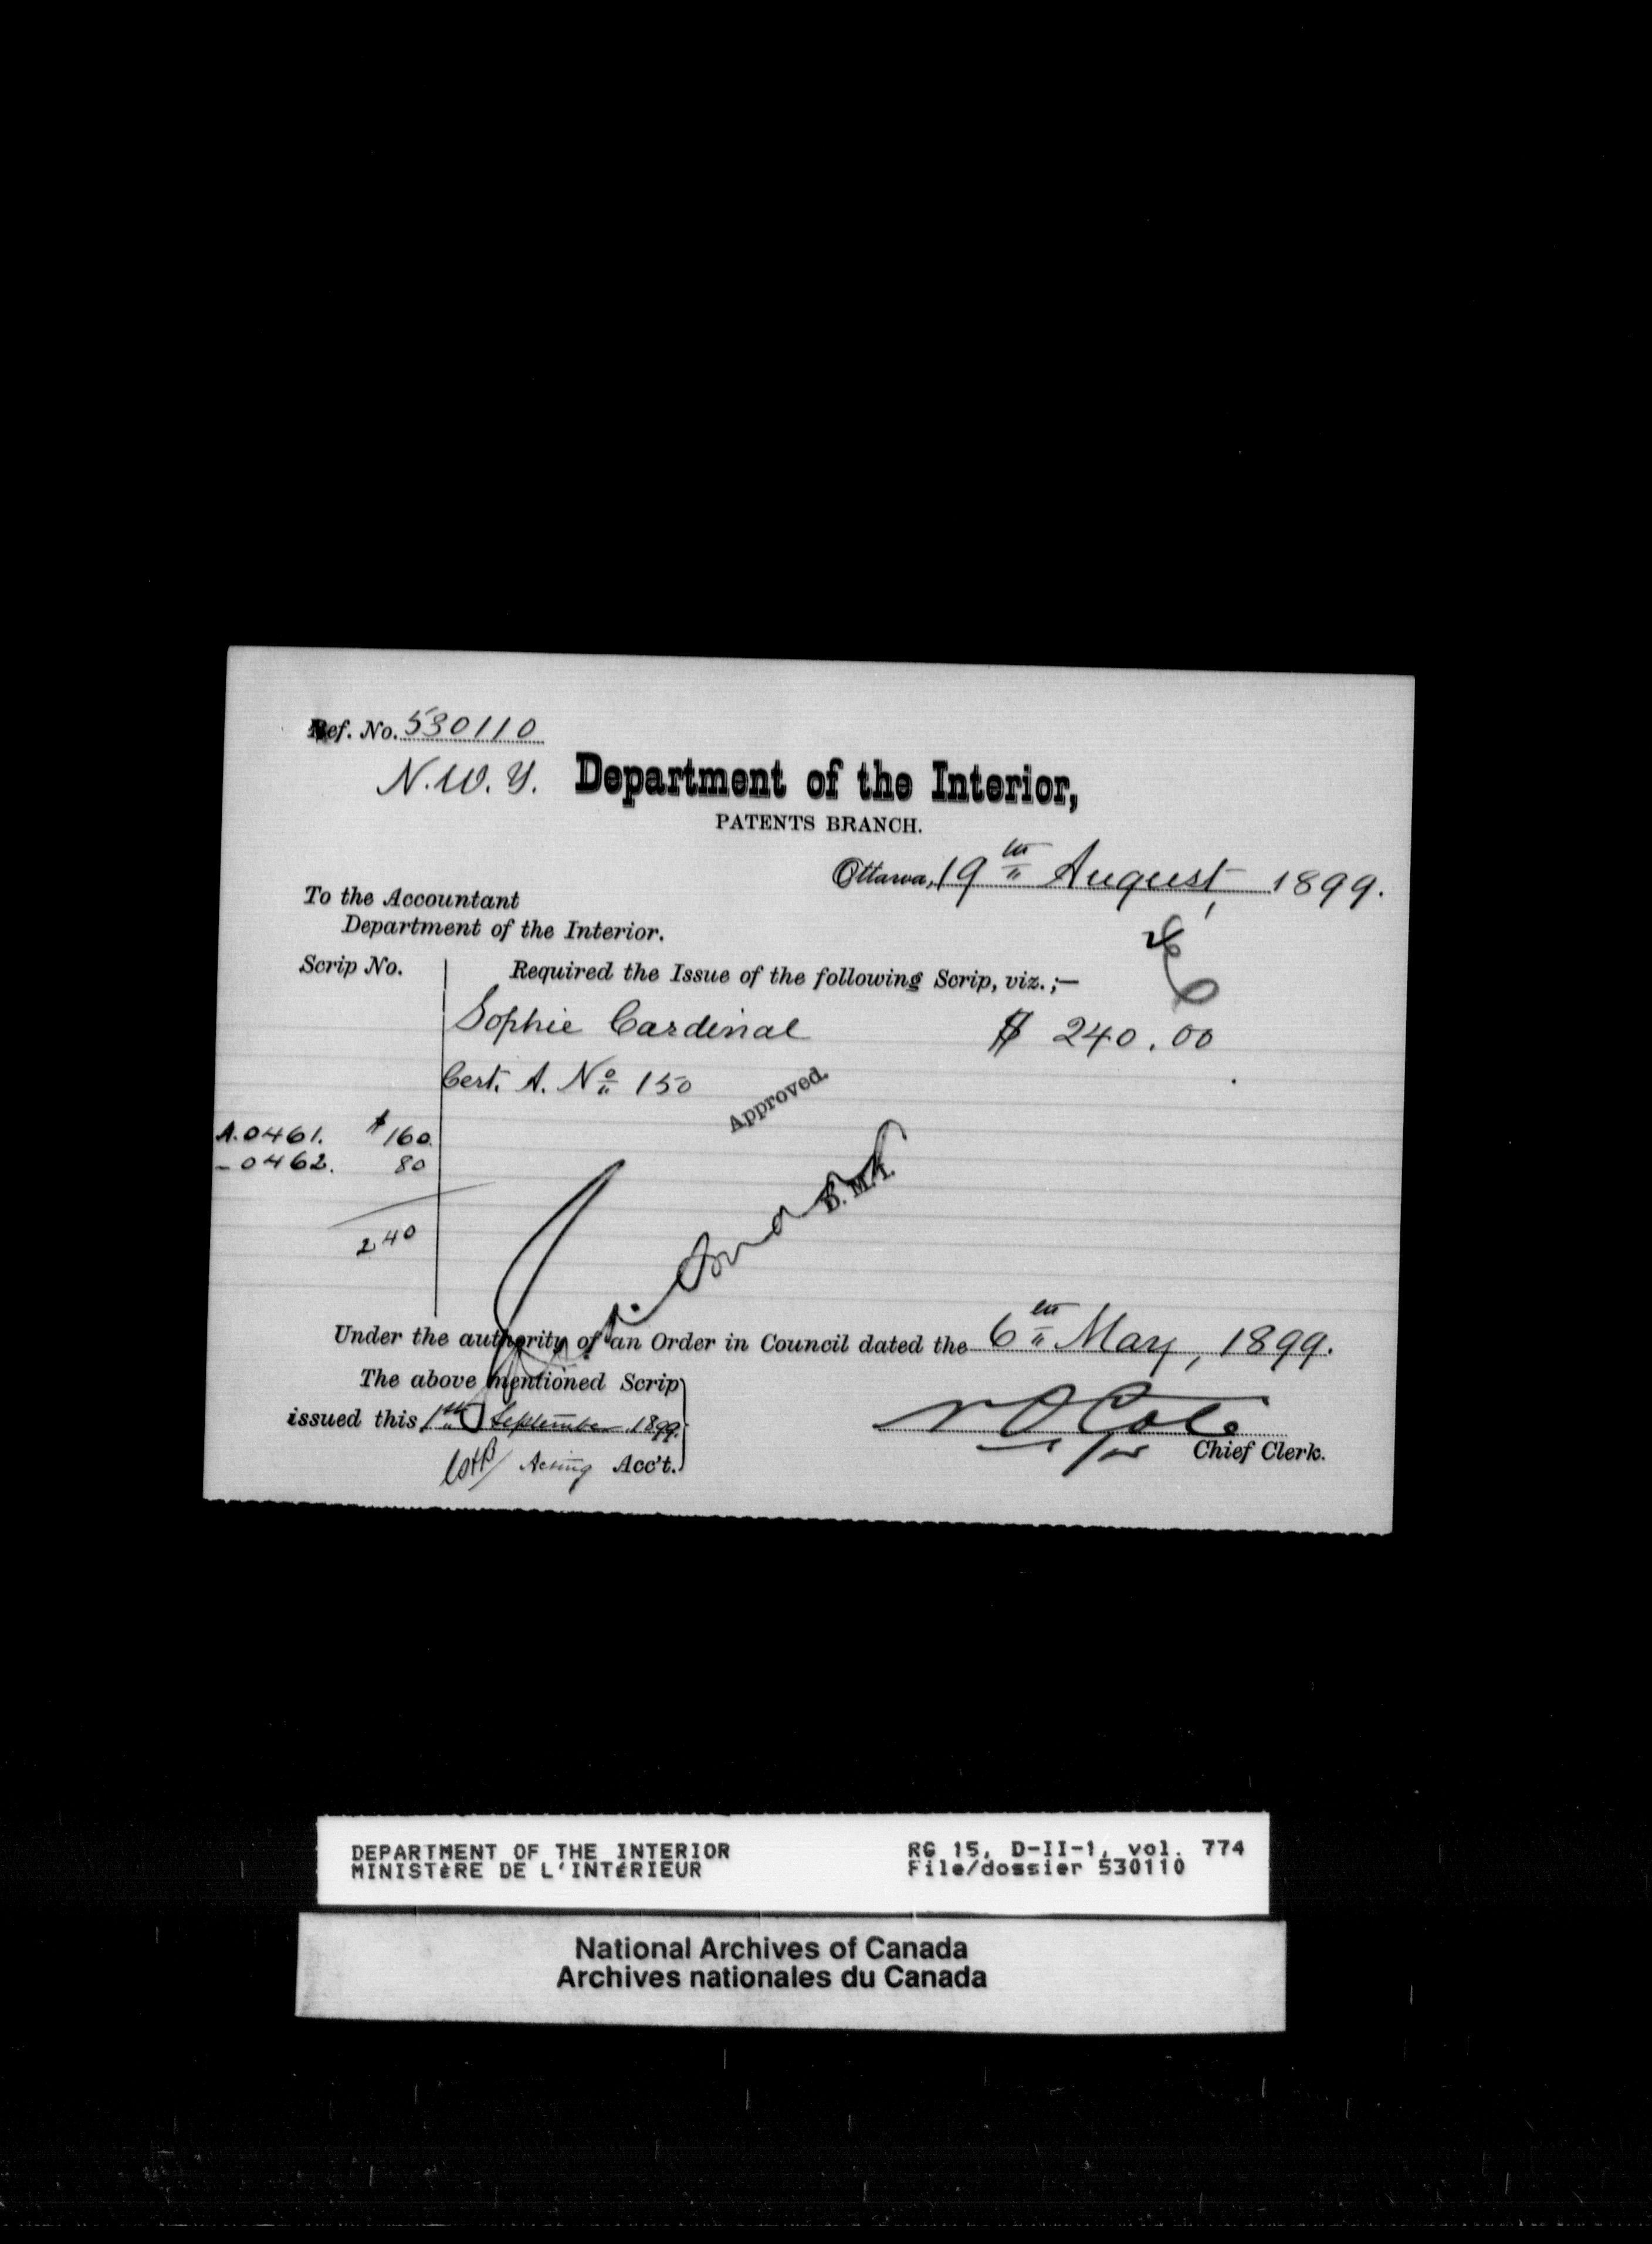 Ref. No. 530110
N.W.Y. Department of the Interior,
PATENTS BRANCH.
Ottawa, 19th August, 1899.
To the Accountant
Department of the Interior.
Scrip No.
Required the Issue of the following Scrip, viz.;—
Sophie Cardinal $ 240.00
Cert. A. No 150
Approved.
A.0461. $160.
- 0462. 80
240
D. M. I.
Under the authority of an Order in Council dated the 6th May, 1899.
The above mentioned Scrip
issued this 1st September 1899.
Acting Acc't.
N O Coté
Chief Clerk.
DEPARTMENT OF THE INTERIOR RG 15, D-II-1, vol. 774
MINISTÈRE DE L'INTÉRIEUR File/dossier 530110
National Archives of Canada
Archives nationales du Canada